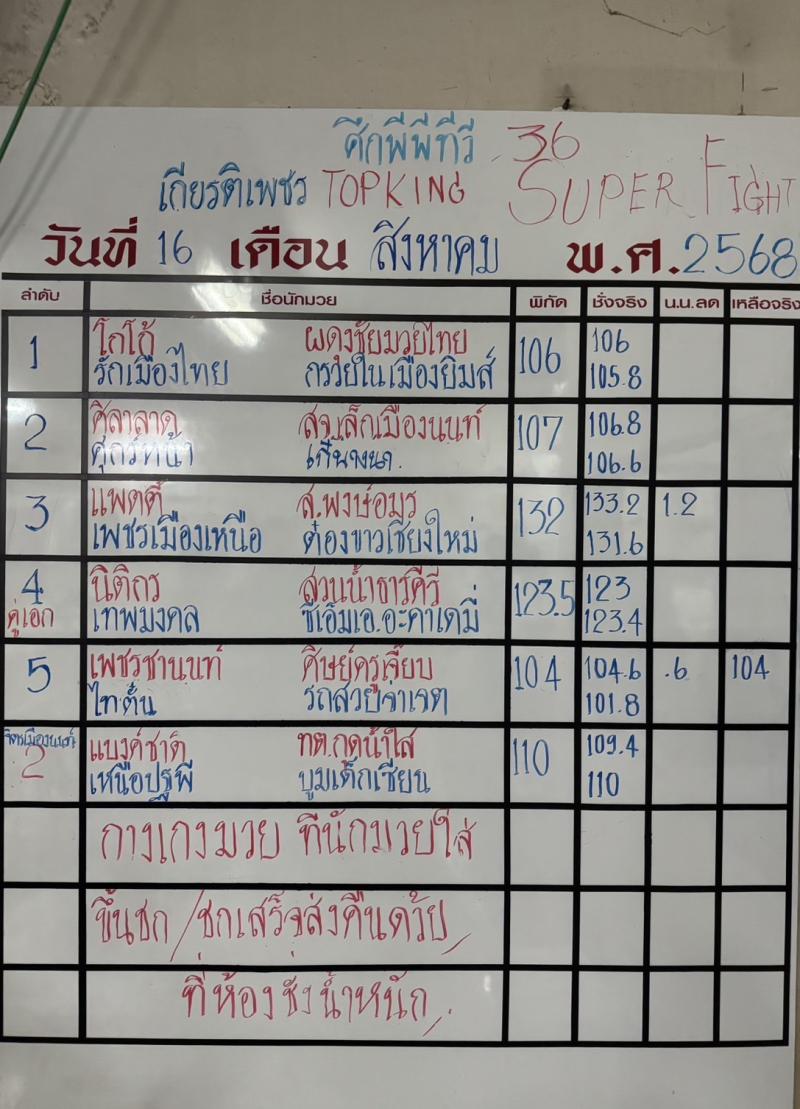 ศึกพีพีทีวี 36
เกียรติเพชร TOPKING SUPER FIGHT
วันที่ 16 เดือน สิงหาคม พ.ศ.2568
ลำดับ ชื่อนักมวย พิกัด ชั่งจริง น.น.ลด เหลือจริง
1 โกโก้ ผดุงชัยมวยไทย 106 106
รักเมืองไทย กรวยในเมืองยิมส์ 105.8
2 ศิลาลาด สจ.เล็กเมืองนนท์ 107 106.8
106.6
3 แพตตี้ ส.พงษ์อมร 132 133.2 1.2
เพชรเมืองเหนือ ต๋องขาวเชียงใหม่ 131.6
4 นิติกร สวนน้ำธารคีรี 123.5 123
คู่เอก เทพมงคล ซีเอ็มเอ.อะคาเดมี่ 123.4
5 เพชรชานนท์ ศิษย์ครูเจี๊ยบ 104 104.6 .6 104
ไทตั้น รถสวยจ่าเจต 101.8
จิตรเมืองนนท์ แบงค์ชาติ ทต.กุดน้ำใส 110 109.4
2 เหนือปฐพี บูมเด็กเซียน 110
กางเกงมวย ที่นักมวยใส่
ขึ้นชก/ชกเสร็จส่งคืนด้วย
ที่ห้องชั่งน้ำหนัก